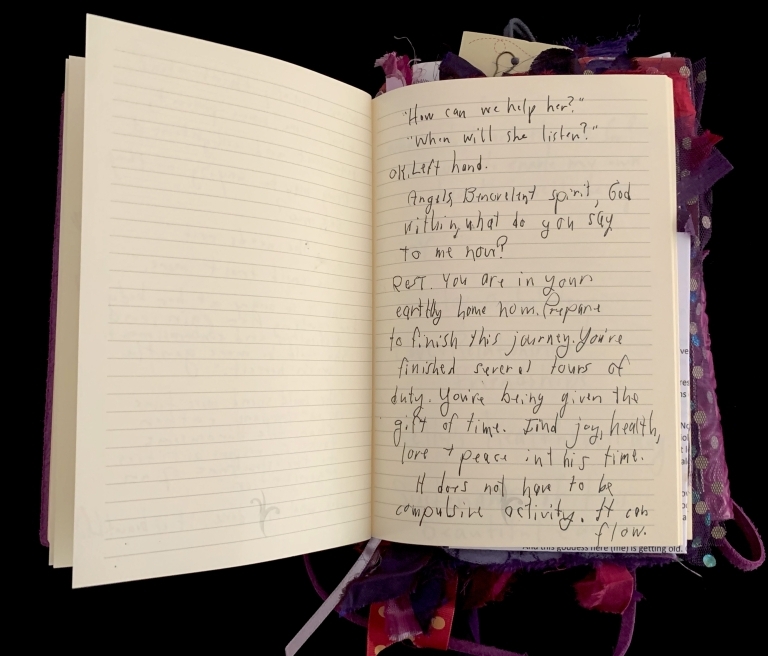 "How can we help her?"
"When will she listen?"
OK. Left hand.
Angels, Benevelent spirit, God
within, what do you say
to me now?
Rest. You are in your
earthly home now. Prepare
to finish this journey. You're
finished several tours of
duty. You're being given the
gift of time. Find joy, health,
love + peace in this time.
It does not have to be
compulsive activity. It can
flow.
And this goddess here (me) is getting old.